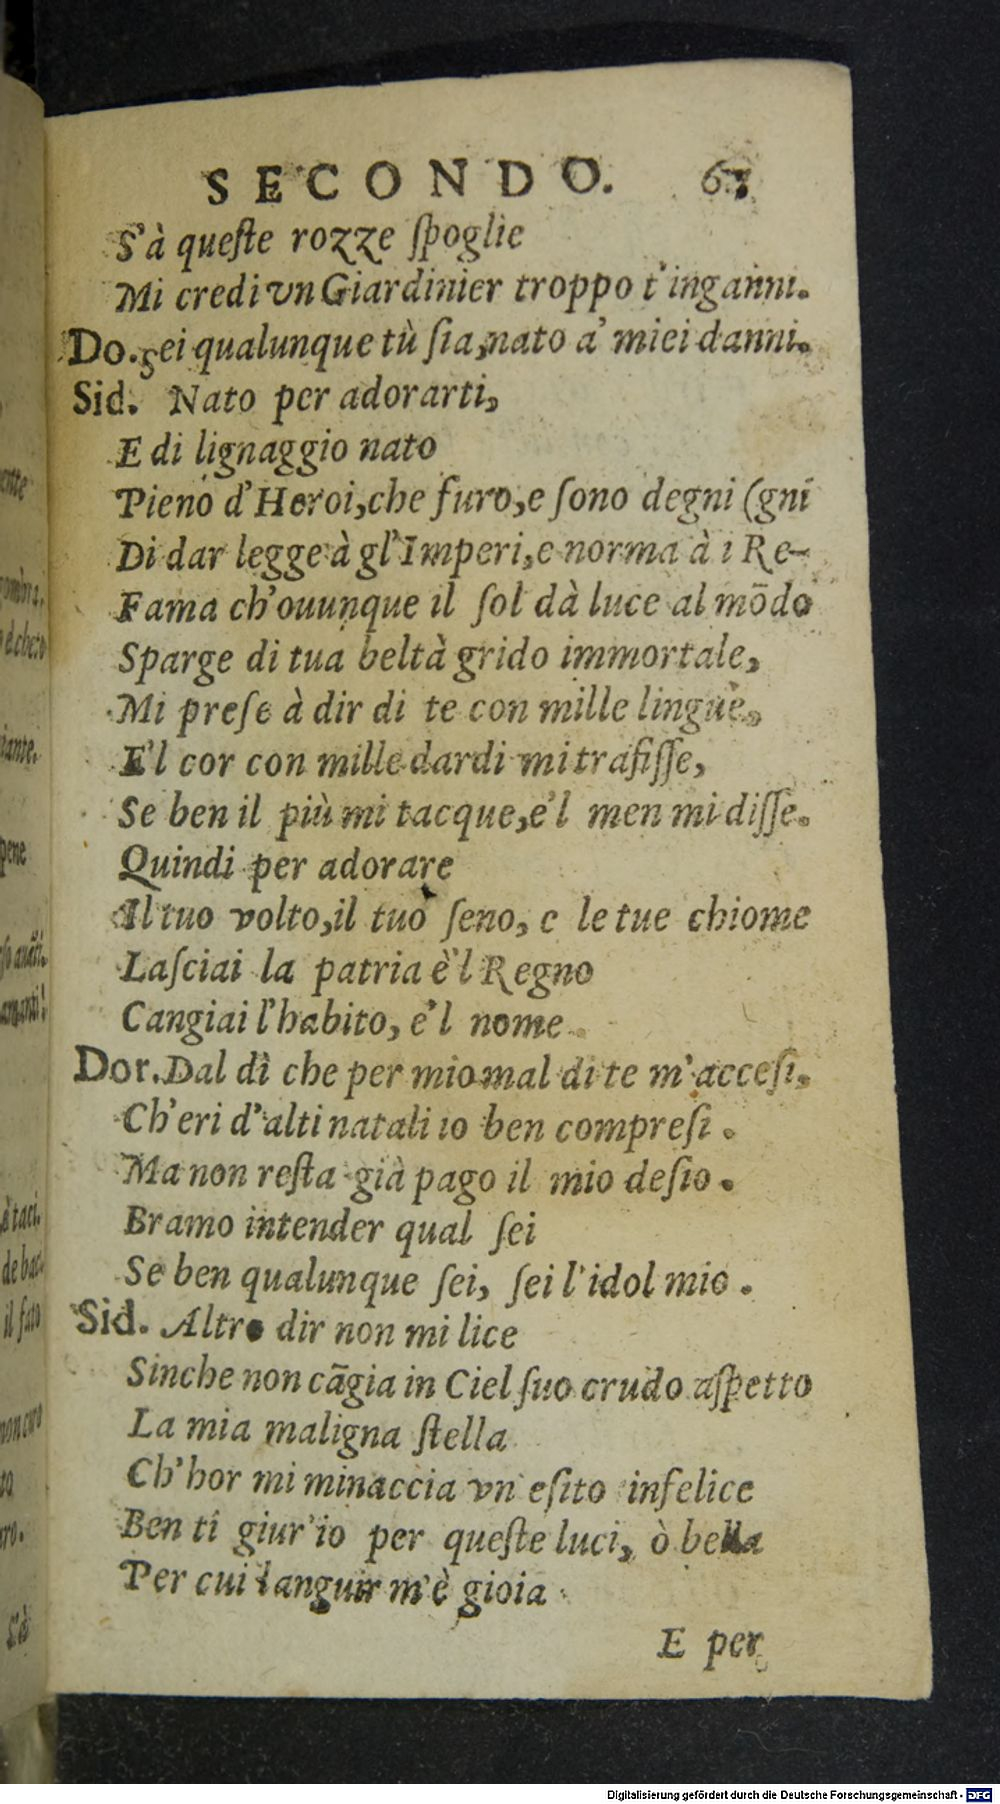 SECONDO. 63
S'à queſte rozze ſpoglie
Mi credi vn Giardinier troppo t'inganni.
Do. Sei qualunque tù ſia, nato a' miei danni.
Sid. Nato per adorarti,
E di lignaggio nato
Pieno d'Heroi, che furo, e ſono degni (gni
Di dar legge à gl'Imperi, e norma à i Re-
Fama ch'ouunque il ſol dà luce al mōdo
Sparge di tua beltà grido immortale,
Mi preſe à dir di te con mille lingue,
E'l cor con mille dardi mi trafiſſe,
Se ben il più mi tacque, e'l men mi diſſe.
Quindi per adorare
Il tuo volto, il tuo ſeno, e le tue chiome
Laſciai la patria e'l Regno
Cangiai l'habito, e'l nome
Dor. Dal dì che per mio mal di te m'acceſi,
Ch'eri d'alti natali io ben compreſi.
Ma non reſta già pago il mio deſio.
Bramo intender qual ſei
Se ben qualunque ſei, ſei l'idol mio.
Sid. Altro dir non mi lice
Sinche non cāgia in Ciel ſuo crudo aſpetto
La mia maligna ſtella
Ch'hor mi minaccia vn eſito infelice
Ben ti giur'io per queſte luci, ò bella
Per cui languir m'è gioia
E per
Digitalisierung gefördert durch die Deutsche Forschungsgemeinschaft - DFG